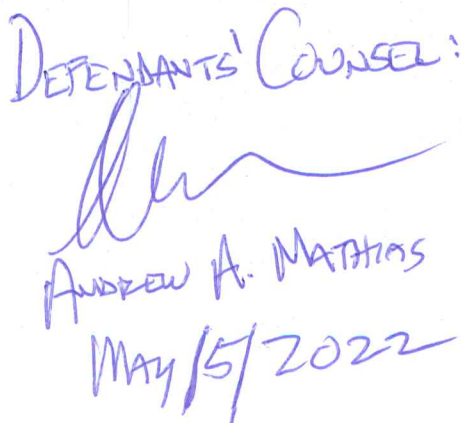 DEFENDANTS' COUNSEL:
ANDREW A. MATHIAS
MAY/5/2022